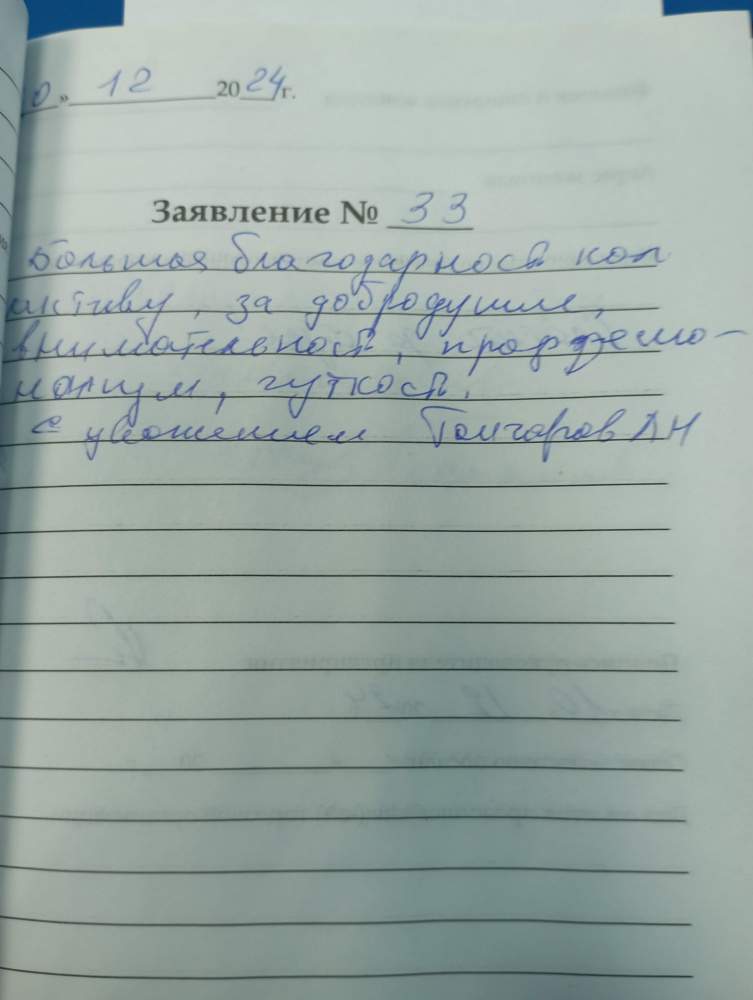 0» 12 2024г.
Заявление № 33
Большая благодарность кол
ективу, за добродушие,
внимательность, професио-
нализм, чуткость.
с уважением Гончаров АН